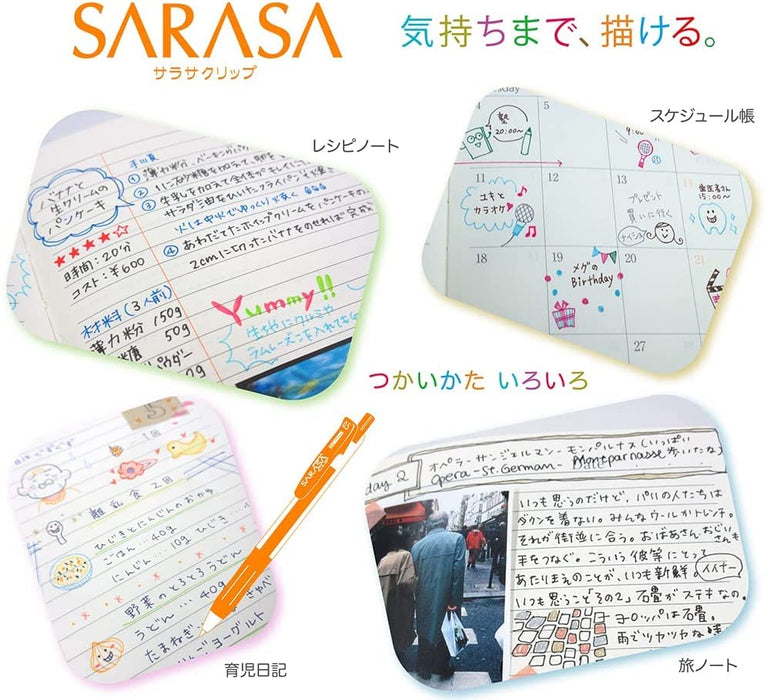 SARASA
サラサクリップ
気持ちまで、描ける。
レシピノート
バナナと
生クリームの
パンケーキ
★★★★☆
時間:20分
コスト:¥600
材料(3人前)
薄力粉 150g
50g
パウダー
手順
① 薄力粉、ベーキングパ
②
③ 牛乳を加えて全体が
サラダ油をひいたフライパン
火は中火でゆっくり焼く
④ あわだてたホイップクリームをパンケーキの
2cmに切ったバナナをのせれば完成
Yummy!!
生地にクルミや
ラムレーズンを入れても
スケジュール帳
4
塾
20:00〜
5
9:00
11
ユキと
カラオケ
12
13
プレゼント
買いに行く
ナイショ
14
歯医者さん
15:00〜
18
19
メグの
Birthday
20
21
27
つかいかた いろいろ
5
1回
離乳食2回
ひじきとにんじんのおかゆ
ごはん…40g
にんじん…10g ひじき…
野菜のとろとろうどん
うどん…40g
たまねぎ
ヨーグルト
SARASA
育児日記
day 2
オペラ-サンジェルマン-モンパルナス(いっぱい
Opera-St.German- Montparnasse 歩いたな)
いつも思うのだけど、パリの人たちは
ダウンを着ない。みんなウールかトレンチ。
それが街並に合う。おばあさんおじいさんも
手をつなぐ。こういう彼等にとって
あたりまえのことが、いつも新鮮。イイナー
いつも思うこと「その2」石畳がステキなの。
ヨーロッパは石畳。
雨でツヤツヤな
旅ノート